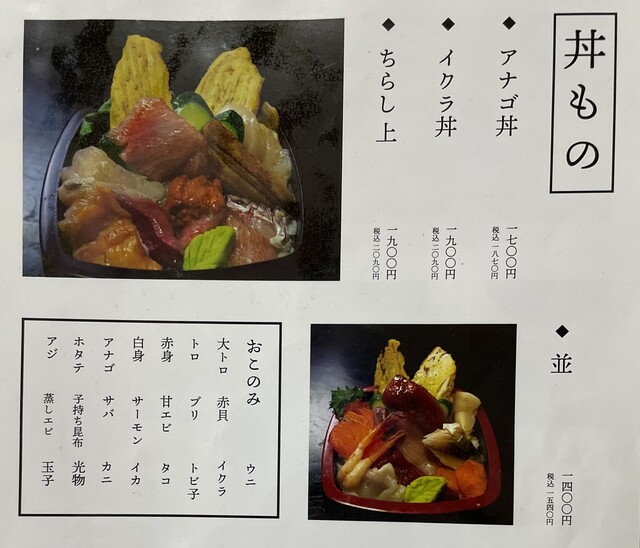 丼もの
◆ アナゴ丼
一七〇〇円
税込 一八七〇円
◆ イクラ丼
一九〇〇円
税込 二〇九〇円
◆ ちらし上
一九〇〇円
税込 二〇九〇円
◆ 並
一四〇〇円
税込 一五四〇円
おこのみ ウニ
大トロ 赤貝 イクラ
トロ ブリ トビ子
赤身 甘エビ タコ
白身 サーモン イカ
アナゴ サバ カニ
ホタテ 子持ち昆布 光物
アジ 蒸しエビ 玉子